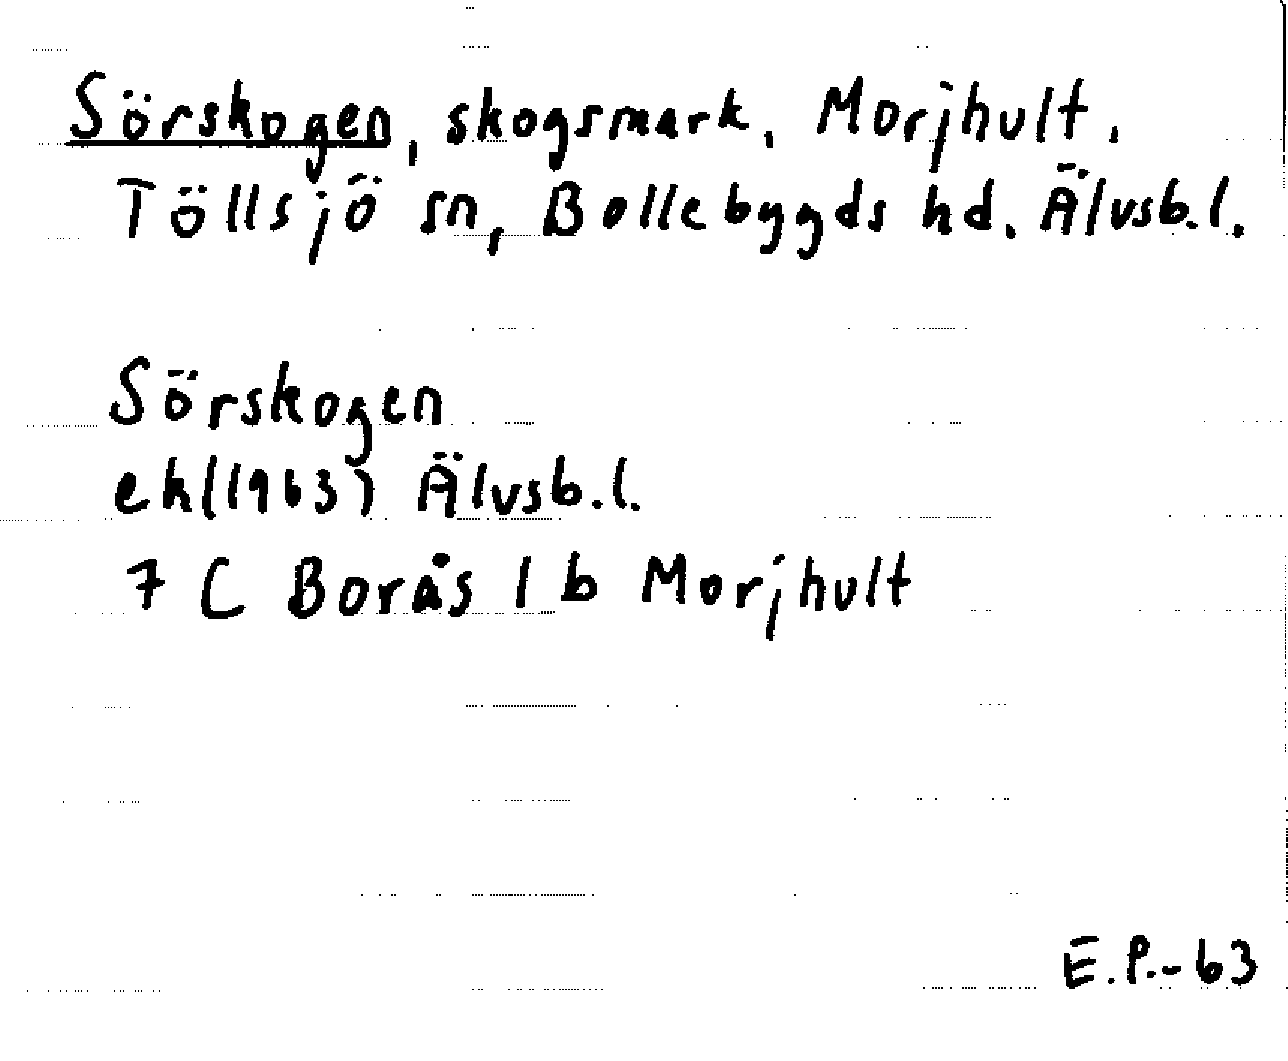 Sörskogen, skogsmark, Morjhult,
Töllsjö sn, Bollebygds hd. Älvsb.l.
Sörskogen
ek(1963) Älvsb.l.
7 C Borås 1 b Morjhult
E.P.-63